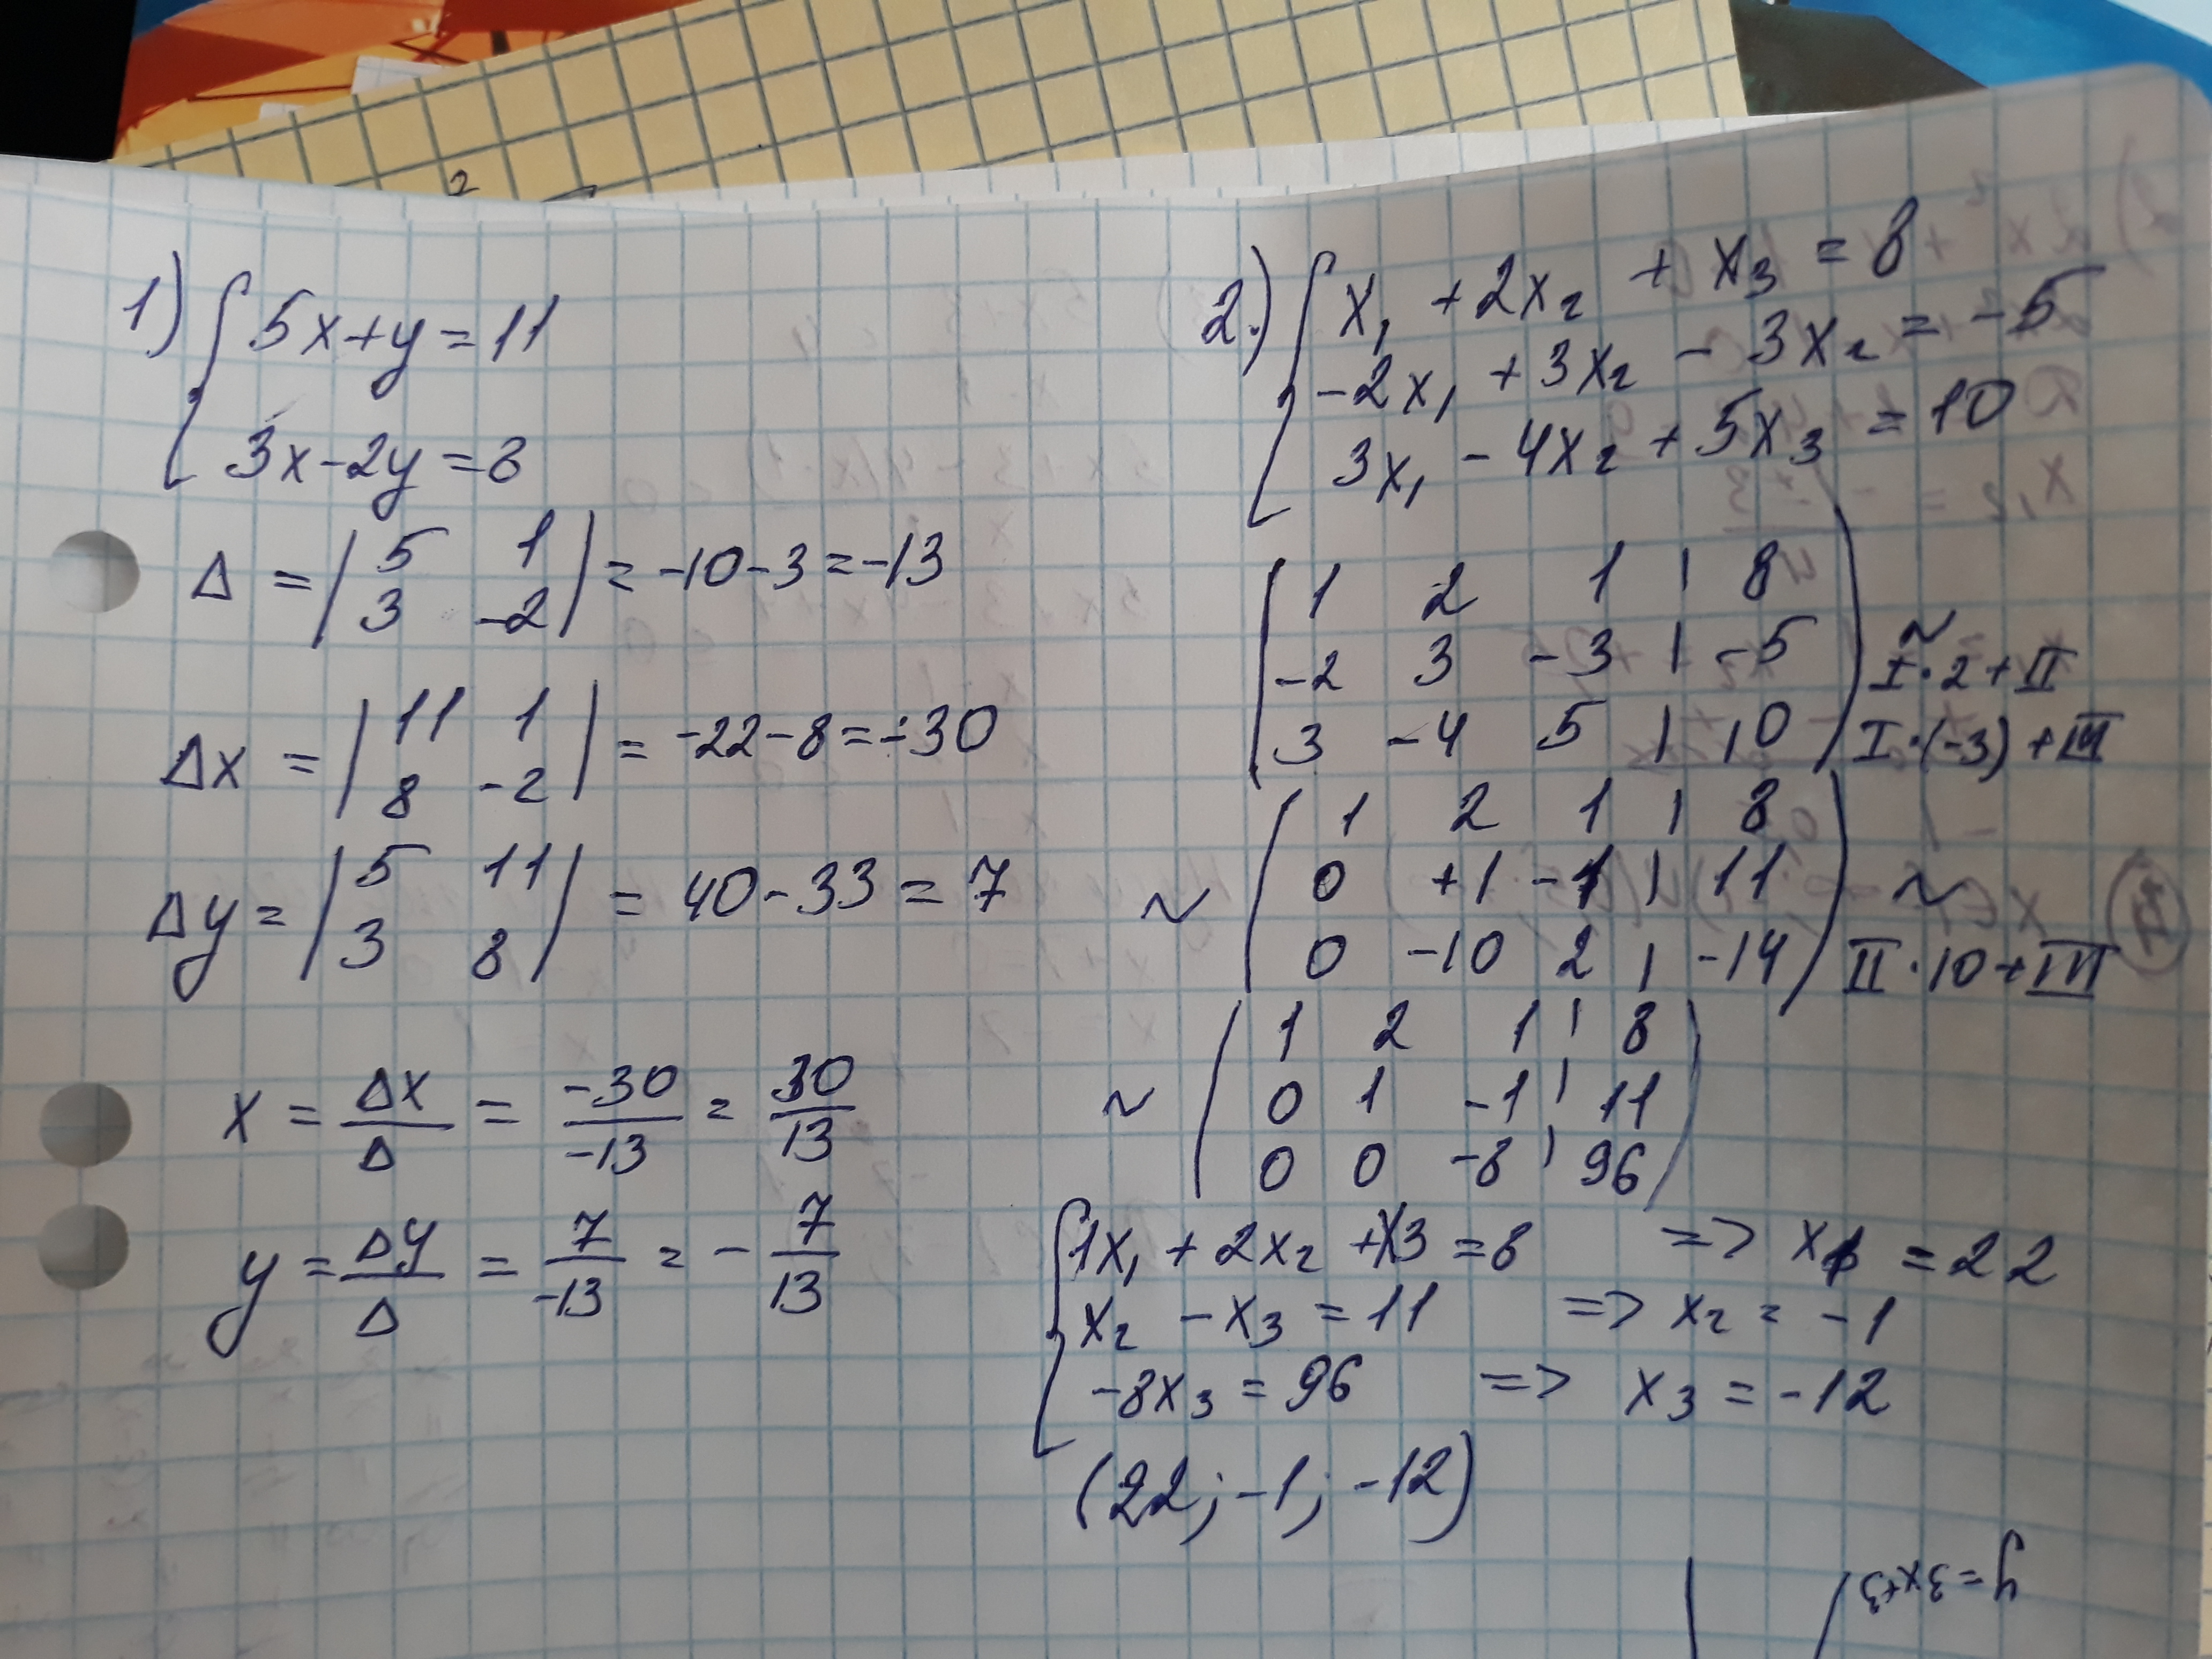 2
1) { 5x+y=11
3x-2y=8
Δ = | 5 1 |
| 3 -2 | = -10-3=-13
Δx = | 11 1 |
| 8 -2 | = -22-8=-30
Δy = | 5 11 |
| 3 8 | = 40-33=7
x = Δx/Δ = -30/-13 = 30/13
y = Δy/Δ = 7/-13 = - 7/13
2.) { x₁ +2x₂ + x₃ = 8
-2x₁ +3x₂ - 3x₂ = -5
3x₁ - 4x₂ + 5x₃ = 10
( 1 2 1 | 8 ) ~
( -2 3 -3 | -5 ) I·2+II
( 3 -4 5 | 10 ) I·(-3)+III
( 1 2 1 | 8 )
~ ( 0 +1 -1 | 11 ) ~
( 0 -10 2 | -14 ) II·10+III
( 1 2 1 | 8 )
~ ( 0 1 -1 | 11 )
( 0 0 -8 | 96 )
{ 1x₁ + 2x₂ + x3 = 8 => x₁ = 22
x₂ - x₃ = 11 => x₂ = -1
-8x₃ = 96 => x₃ = -12
(22; -1; -12)
y=3x+3